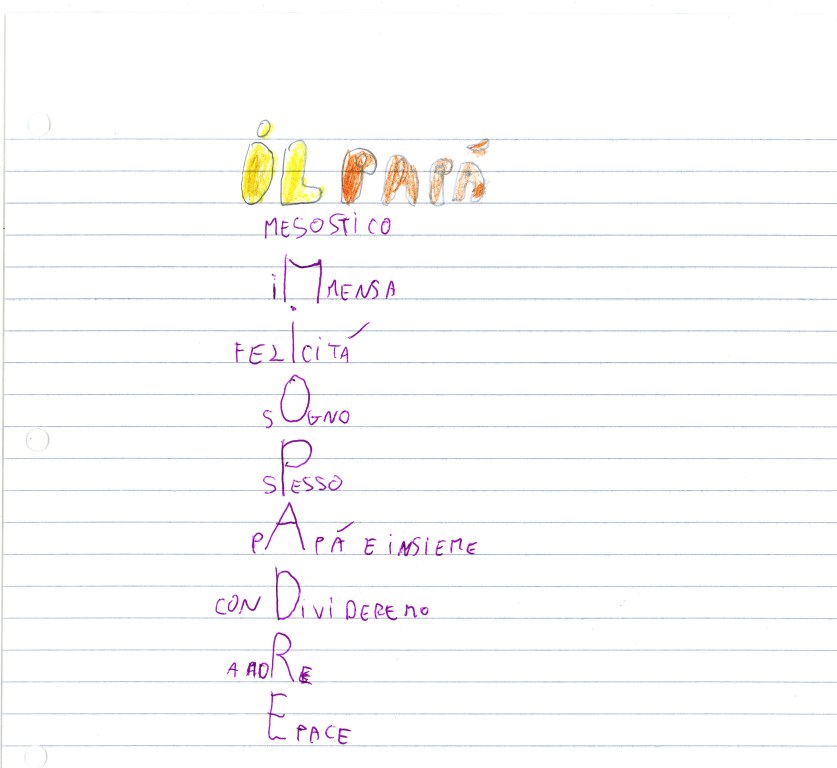 iL PAPÁ
MESOSTiCO
iMMENSA
FELICiTÁ
SOGNO
SPESSO
PAPÁ E iNSIEME
CON DiViDEREMO
AMORE
E PACE